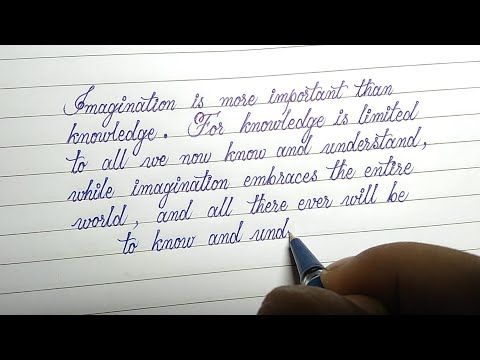 Imagination is more important than
knowledge. For knowledge is limited
to all we now know and understand,
while imagination embraces the entire
world, and all there ever will be
to know and und